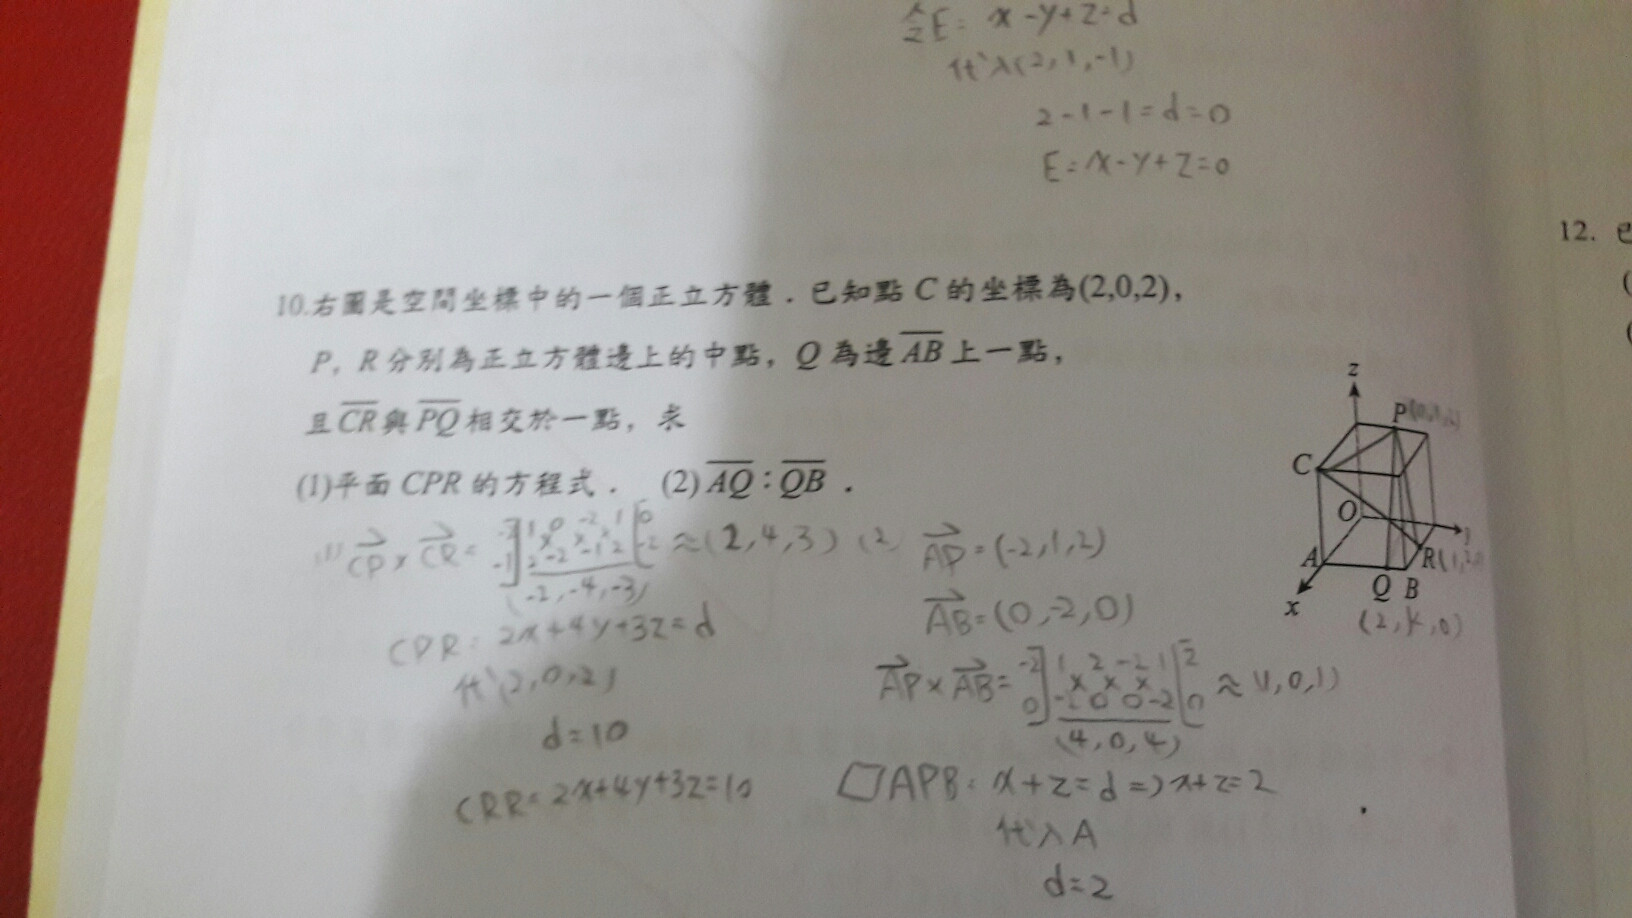 令E: x-y+z=d
代入(2,1,-1)
2-1-1=d=0
E:x-y+z=0
12.
10.右圖是空間坐標中的一個正立方體.已知點C的坐標為(2,0,2),
P, R分別為正立方體邊上的中點, Q為邊AB上一點,
且CR與PQ相交於一點, 求
(1)平面CPR的方程式. (2)AQ:QB.
z
P
C
O
A
R
Q B
x
(2,k,0)
(1) CP×CR= -2 1 0 -2 1 0
-1 2 -2 -1 2 -2
(-2,-4,-3)
≈(2,4,3)
CPR: 2x+4y+3z=d
代(2,0,2)
d=10
CRR: 2x+4y+3z=10
(2) AP=(-2,1,2)
AB=(0,-2,0)
AP×AB= -2 1 2 -2 1 2
0 -2 0 0 -2 0
(4,0,4)
≈(1,0,1)
APB: x+z=d=)x+z=2
代入A
d=2